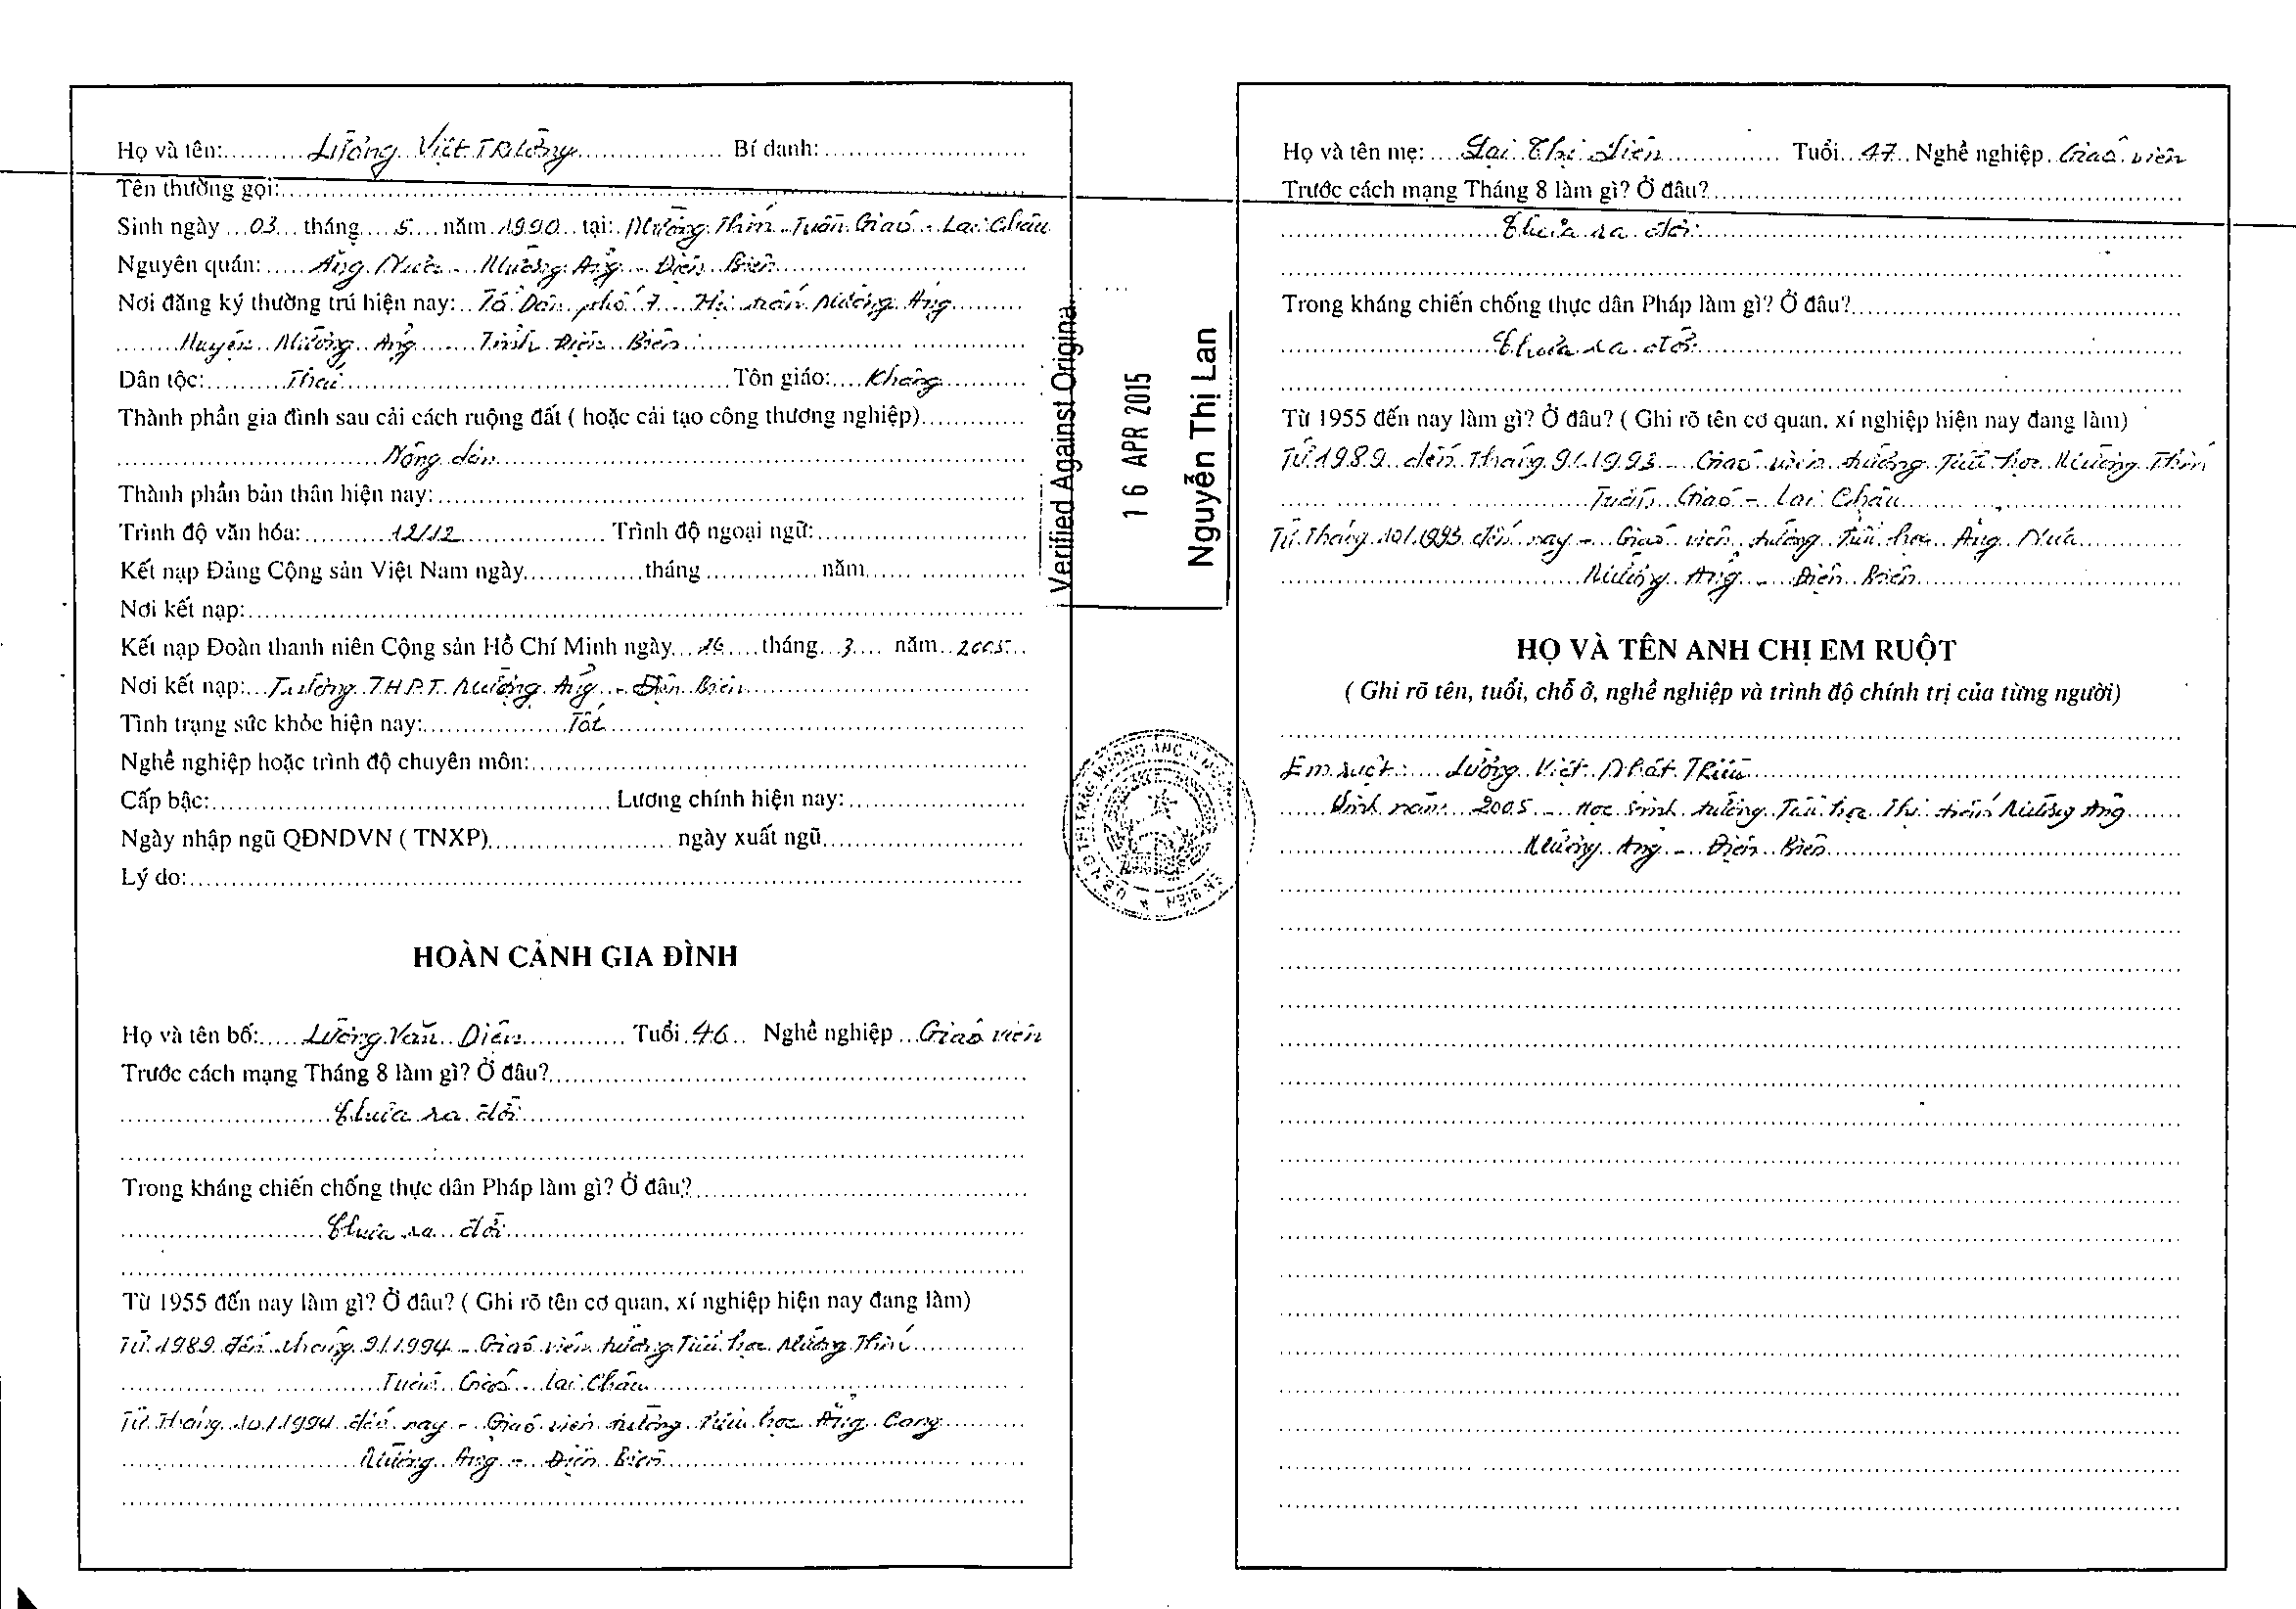 Họ và tên: Lường Việt Trường Bí danh:
Tên thường gọi:
Sinh ngày 03 tháng 5 năm 1990 tại: Mường Thín - Tuần Giáo - Lai Châu
Nguyên quán: Ẳng Nưa - Mường Ảng - Điện Biên
Nơi đăng ký thường trú hiện nay: Tổ Dân phố 7 - Thị trấn Mường Ảng
Huyện Mường Ảng - Tỉnh Điện Biên
Dân tộc: Thái Tôn giáo: Không
Thành phần gia đình sau cải cách ruộng đất ( hoặc cải tạo công thương nghiệp)
Nông dân
Thành phần bản thân hiện nay:
Trình độ văn hóa: 12/12 Trình độ ngoại ngữ:
Kết nạp Đảng Cộng sản Việt Nam ngày tháng năm
Nơi kết nạp:
Kết nạp Đoàn thanh niên Cộng sản Hồ Chí Minh ngày 26 tháng 3 năm 2005
Nơi kết nạp: Trường THPT Mường Ảng - Điện Biên
Tình trạng sức khỏe hiện nay: Tốt
Nghề nghiệp hoặc trình độ chuyên môn:
Cấp bậc: Lương chính hiện nay:
Ngày nhập ngũ QĐNDVN ( TNXP) ngày xuất ngũ
Lý do:
HOÀN CẢNH GIA ĐÌNH
Họ và tên bố: Lường Văn Diện Tuổi 46 Nghề nghiệp Giáo viên
Trước cách mạng Tháng 8 làm gì? Ở đâu?
Chưa ra đời
Trong kháng chiến chống thực dân Pháp làm gì? Ở đâu?
Chưa ra đời
Từ 1955 đến nay làm gì? Ở đâu? ( Ghi rõ tên cơ quan, xí nghiệp hiện nay đang làm)
Từ 1989 đến tháng 9/1994 - Giáo viên trường Tiểu học Mường Thín
Tuần Giáo - Lai Châu
Từ tháng 10/1994 đến nay - Giáo viên trường Tiểu học Ẳng Cang
Mường Ảng - Điện Biên
Verified Against Original
16 APR 2015
Nguyễn Thị Lan
Họ và tên mẹ: Lại Thị Liên Tuổi 47 Nghề nghiệp Giáo viên
Trước cách mạng Tháng 8 làm gì? Ở đâu?
Chưa ra đời
Trong kháng chiến chống thực dân Pháp làm gì? Ở đâu?
Chưa ra đời
Từ 1955 đến nay làm gì? Ở đâu? ( Ghi rõ tên cơ quan, xí nghiệp hiện nay đang làm)
Từ 1989 đến tháng 9/1993 - Giáo viên trường Tiểu học Mường Thín
Tuần Giáo - Lai Châu
Từ tháng 10/1993 đến nay - Giáo viên trường Tiểu học Ẳng Nưa
Mường Ảng - Điện Biên
HỌ VÀ TÊN ANH CHỊ EM RUỘT
( Ghi rõ tên, tuổi, chỗ ở, nghề nghiệp và trình độ chính trị của từng người)
Em ruột: Lường Việt Nhất
Sinh năm 2005 - Học sinh trường Tiểu học Thị trấn Mường Ảng
Mường Ảng - Điện Biên